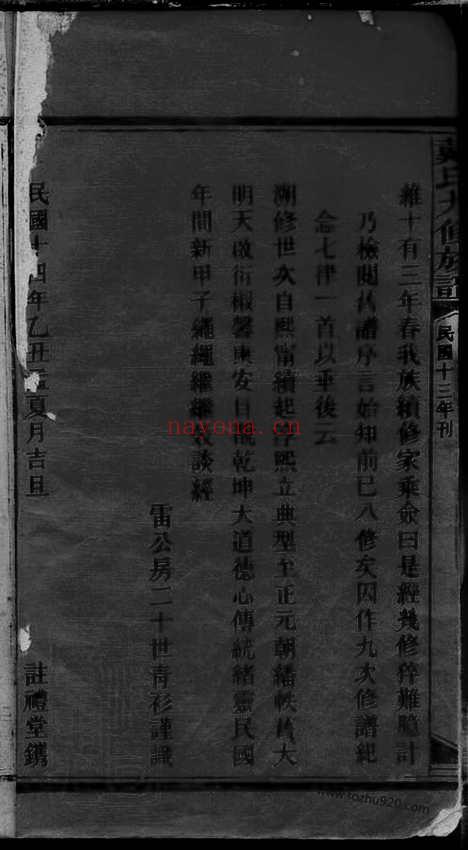 氏九修族譜
民國十三年刊
維十有三年春我族續修家乘僉曰是經幾修猝難臆計
乃檢閱舊譜序言始知前已八修矣因作九次修譜紀
念七律一首以垂後云
溯修世次自熙甯續起淳熙立典型至正元朝繙帙舊大
明天啟衍椒馨 乾坤大道德心傳統緒靈民國
年間新甲子繩繩繼繼 談經
雷公房二十世青衫謹識
民國十四年乙丑 夏月吉旦
註禮堂鐫
nayona.cn
www.tozhu920.com